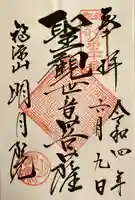 奉拝
令和四年
六月九日
聖観世音菩薩
福源山 明月院